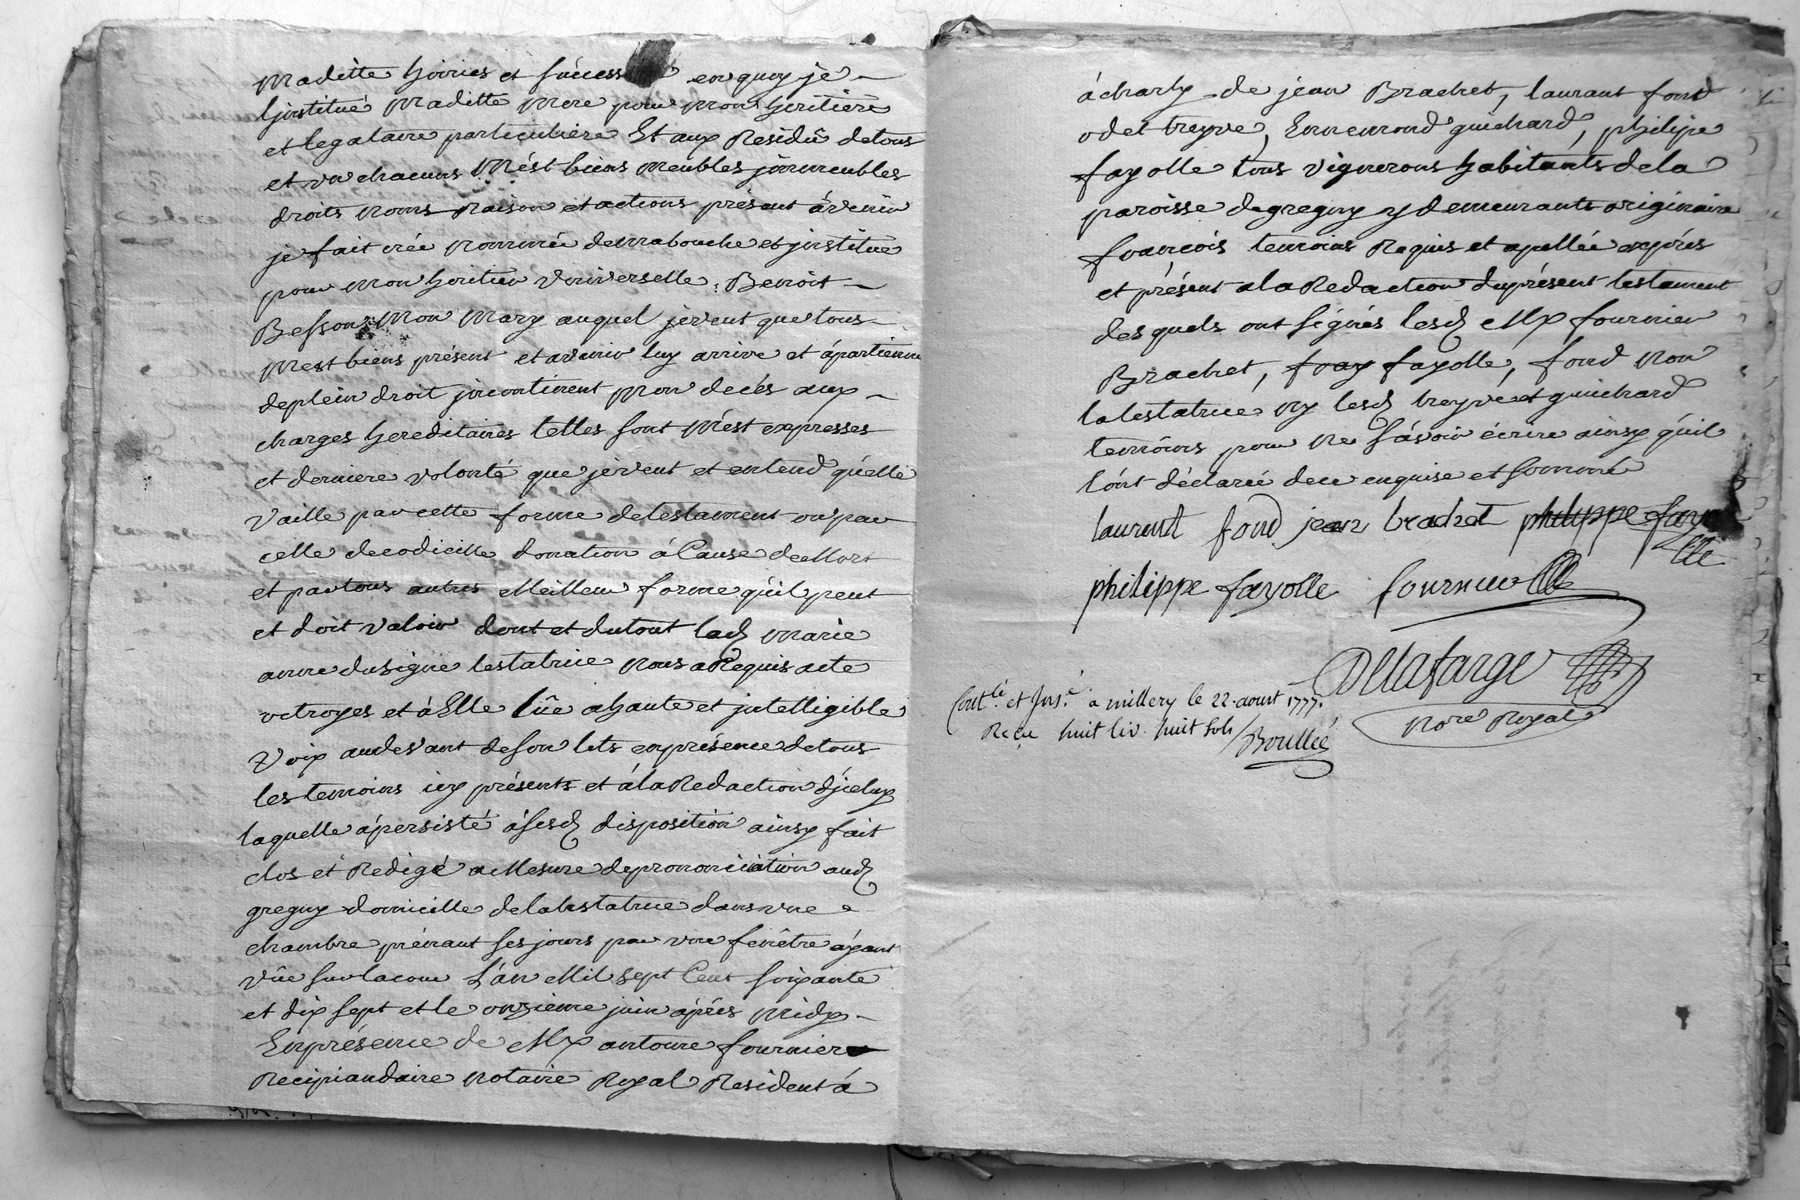 Maditte hoiries et succes en quoy je
Jnstitue Maditte Mere pour Mon heritiere
et legataire particuliere Et aux Residû de tous
et un chacuns Mést biens meubles jmmeubles
droits noms raison et actions présent àvenir
je fait créé nommée de ma bouche et jnstitue
pour mon heritier Universelle, Benoit
Besson, Mon Mary auquel je veut que tous
Mest biens présent et avenir luy arrive et ápartienne
de plein droit jncontinent Mon decés aux
charges hereditaires telles sont Mést expresses
et derniere volonté que je veut et entend quélle
Vaille par cette forme de testament ou par
celle de codicille donation à Cause de Mort
et par tous autres Meilleur forme quíl peut
et doit valoir dont et du tout lad. marie
anne dusigne testatrice nous a Requis acte
octroyes et à Elle lûe a haute et jntelligible
Voix au devant de son lits en présence de tous
les temoins icy présents et à la Redaction díceluy
laquelle á persisté à sesd. disposition ainsy fait
clos et Redigé a Mesure de prononciation aud.
gregny domicille de la testatrice dans une
chambre prénant ses jours par une fenêtre áyant
vûe sur la cour L'an Mil sept Cent soixante
et dix sept et le onzieme juin áprés midy
En présence de Me antoine fournier
Recipiandaire notaire Royal Resident á
á charly de jean Brachet, laurant fond
odet treyve, Ennemond guichard, philipe
fayolle tous vignerons habitants de la
paroisse de gregny y demeurants originaire
francois temoins Requis et apellée exprés
et présent a la Redaction du présent testament
des quels ont signés lesd. Me fournier
Brachet, fayolle, fond non
la testatrice ny lesd. treyve et guichard
temoins pour ne sávoir écrire ainsy quíl
lónt déclarée de ce enquise et sommé
laurent fond jean brachet philippe fayo
lle
philippe fayolle fournier
Dellafarge
Nore Royal
Contlé. et Jnsé. a millery le 22. aout 1777.
Reçu huit liv. huit sols Boullée